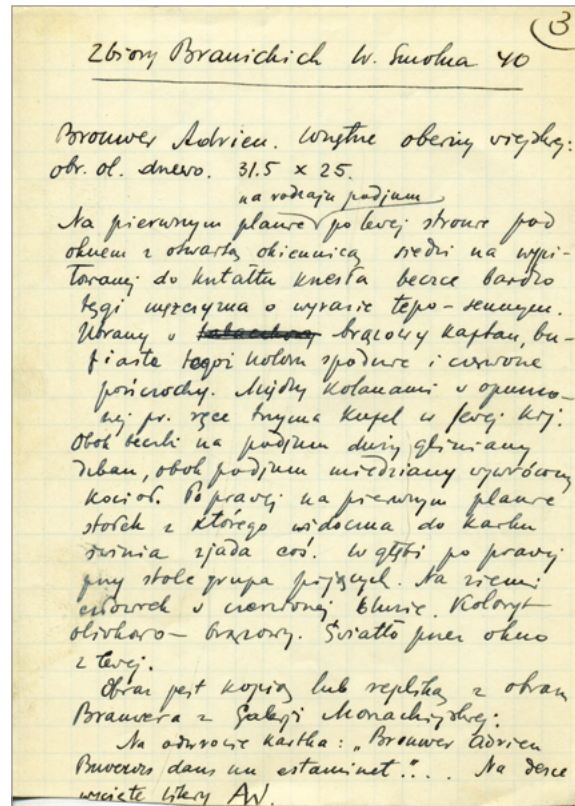 3
Zbiory Branickich W. Smolna 40
Brouwer Adrien. Wnętrze oberży wiejskiej:
obr. ol. drzewo. 31.5 x 25.
na rodzaju podjum
Na pierwszym planie po lewej stronie pod
oknem z otwartą okiennicą siedzi na wypi-
łowanej do kształtu krzesła beczce bardzo
tęgi mężczyzna o wyrazie tępo-sennym.
Ubrany w brązowy kaftan, bu-
fiaste koloru spodnie i czerwone
pończochy. Między kolanami w opuszczo-
nej pr. ręce trzyma kufel w lewej
Obok beczki na podjum duży gliniany
dzban, obok podjum miedziany wywrócony
kocioł. Po prawej na pierwszym planie
stołek z którego widoczna do karku
świnia zjada coś. W głębi po prawej
przy stole grupa pijących. Na ziemi
człowiek w czerwonej bluzie. Koloryt
oliwkowo-brązowy. Światło przez okno
z lewej.
Obraz jest kopią lub repliką z obrazu
Brauwera z Galerji Monachijskiej:
Na odwrocie kartka: „Brouwer Adrien
Buveurs dans un estaminet"... Na desce
wycięte litery AV.